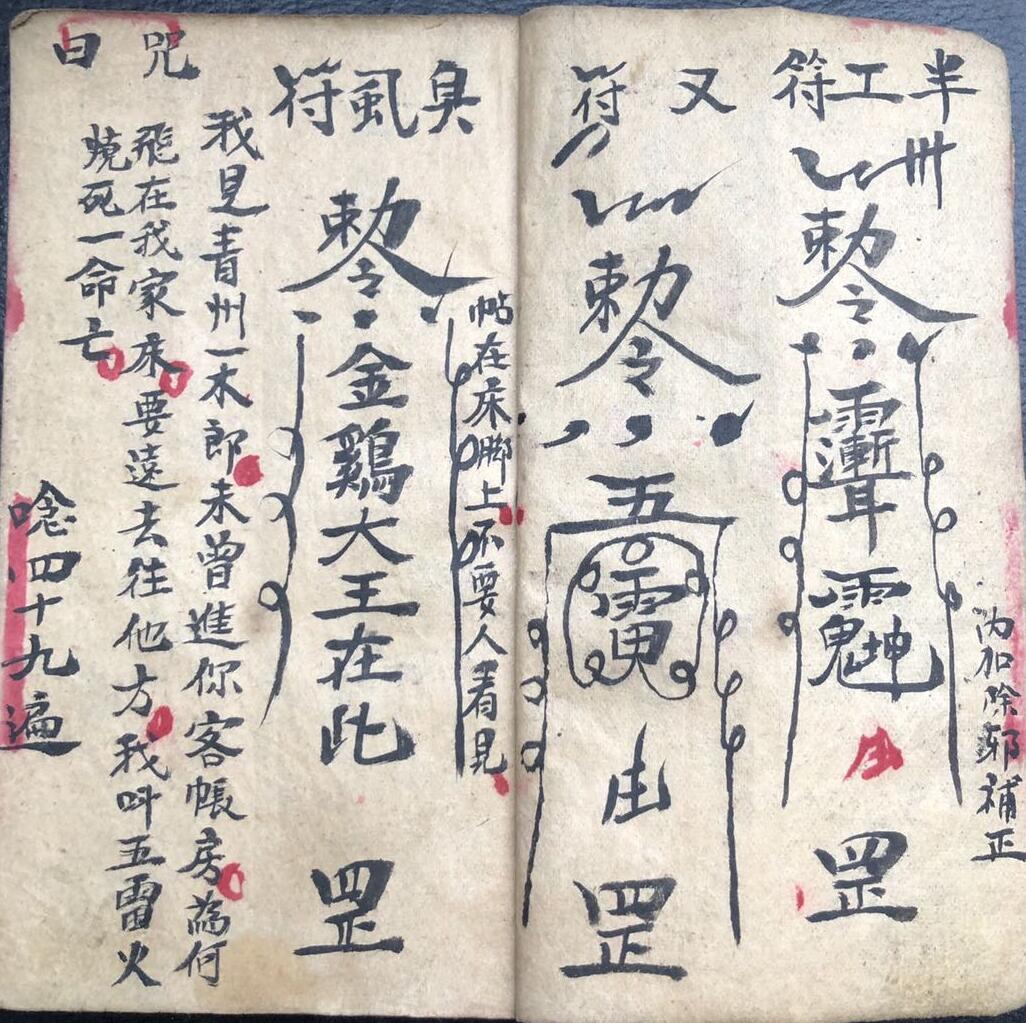 半工符
卅
勅令
魁
罡
內加除邪補正
又符
勅令
五雷
罡
臭虱符
勅令
金鷄大王在此
罡
帖在床脚上不要人看見
咒曰
我是青州一木郎未曾進你客帳房為何
飛在我家床要遠去往他方我叫五雷火
燒死一命亡
唸四十九遍